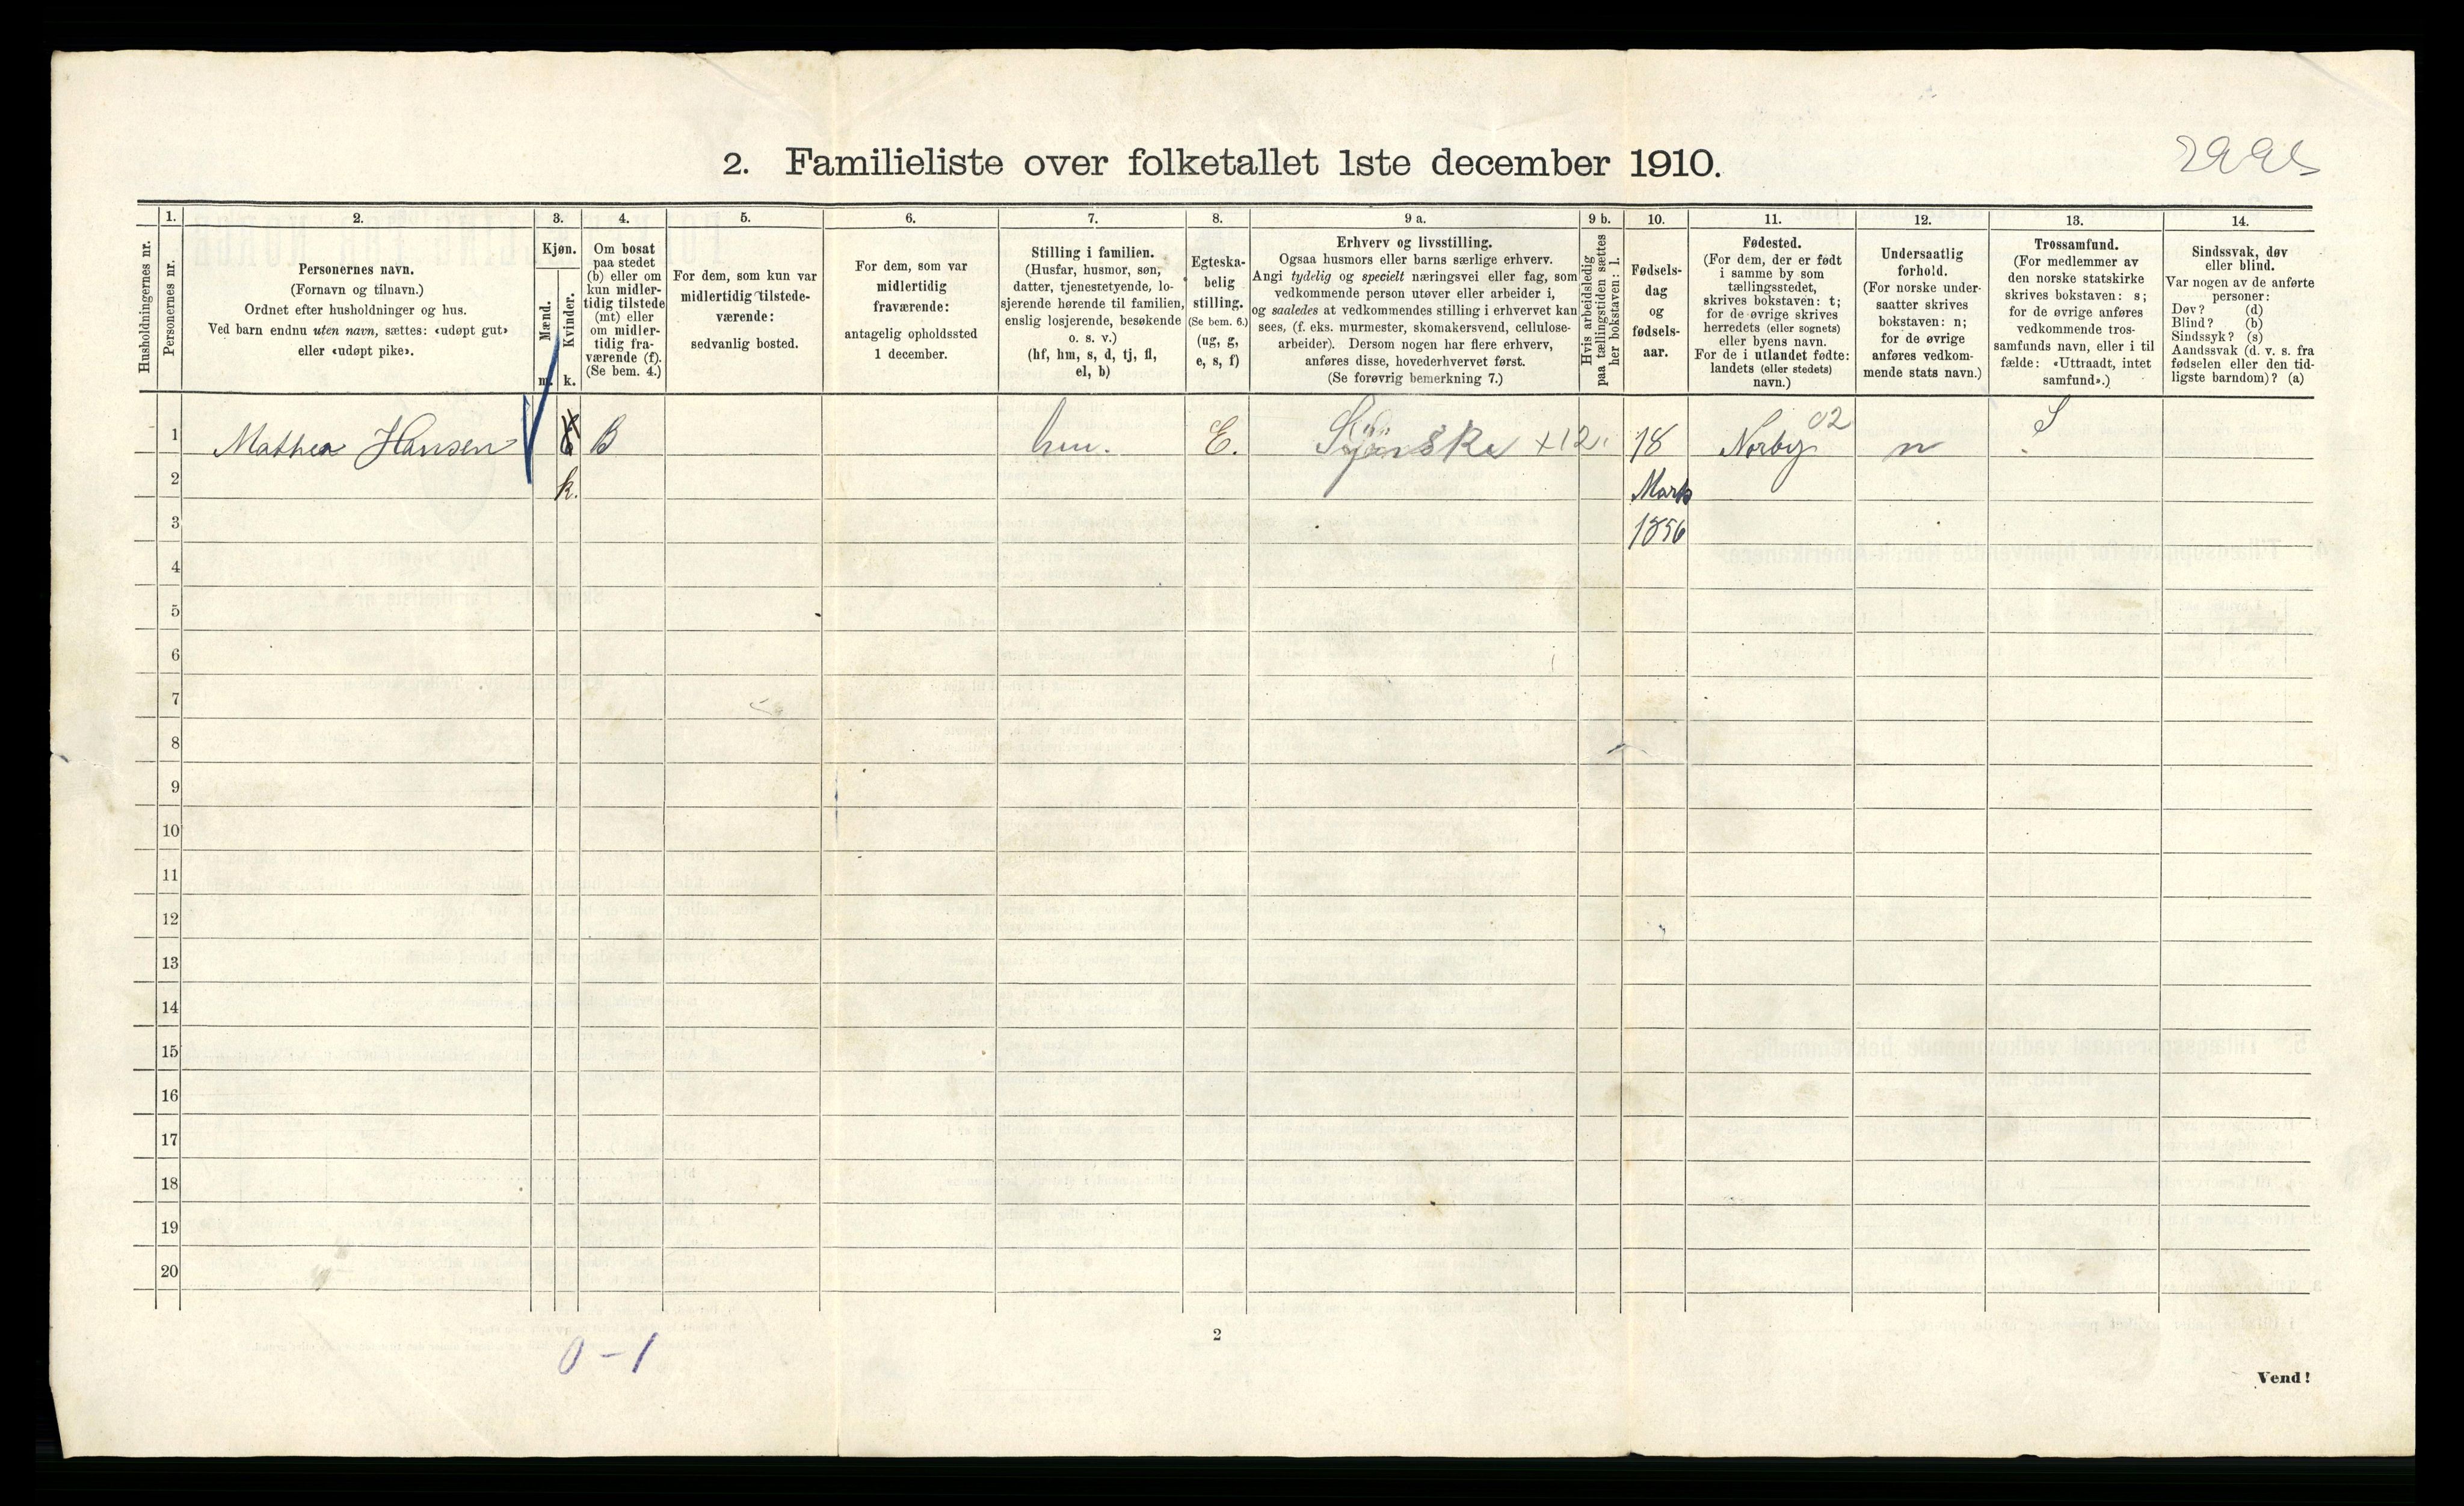 2. Familieliste over folketallet 1ste december 1910.
1. 2. 3. 4. 5. 6. 7. 8. 9 a. 9 b. 10. 11. 12. 13. 14.
Husholdningernes nr.
Personernes nr.
Personernes navn.
(Fornavn og tilnavn.)
Ordnet efter husholdninger og hus.
Ved barn endnu uten navn, sættes: «udøpt gut»
eller «udøpt pike».
Kjøn.
Mænd.
m.
Kvinder.
k.
Om bosat
paa stedet
(b) eller om
kun midler-
tidig tilstede
(mt) eller
om midler-
tidig fra-
værende (f).
(Se bem. 4.)
For dem, som kun var
midlertidig tilstede-
værende:
sedvanlig bosted.
For dem, som var
midlertidig
fraværende:
antagelig opholdssted
1 december.
Stilling i familien.
(Husfar, husmor, søn,
datter, tjenestetyende, lo-
sjerende hørende til familien,
enslig losjerende, besøkende
o. s. v.)
(hf, hm, s, d, tj, fl,
el, b)
Egteska-
belig
stilling.
(Se bem. 6.)
(ug, g,
e, s, f)
Erhverv og livsstilling.
Ogsaa husmors eller barns særlige erhverv.
Angi tydelig og specielt næringsvei eller fag, som
vedkommende person utøver eller arbeider i,
og saaledes at vedkommendes stilling i erhvervet kan
sees, (f. eks. murmester, skomakersvend, cellulose-
arbeider). Dersom nogen har flere erhverv,
anføres disse, hovederhvervet først.
(Se forøvrig bemerkning 7.)
Hvis arbeidsledig
paa tællingstiden sættes
her bokstaven: l.
Fødsels-
dag
og
fødsels-
aar.
Fødested.
(For dem, der er født
i samme by som
tællingsstedet,
skrives bokstaven: t;
for de øvrige skrives
herredets (eller sognets)
eller byens navn.
For de i utlandet fødte:
landets (eller stedets)
navn.)
Undersaatlig
forhold.
(For norske under-
saatter skrives
bokstaven: n;
for de øvrige
anføres vedkom-
mende stats navn.)
Trossamfund.
(For medlemmer av
den norske statskirke
skrives bokstaven: s;
for de øvrige anføres
vedkommende tros-
samfunds navn, eller i til
fælde: «Uttraadt, intet
samfund».)
Sindssvak, døv
eller blind.
Var nogen av de anførte
personer:
Døv? (d)
Blind? (b)
Sindssyk? (s)
Aandssvak (d. v. s. fra
fødselen eller den tid-
ligste barndom)? (a)
1 Mathea Hansen B hm. E. +12. 18 Norby 02 n S
2 k. Marts
3 1856
4
5
6
7
8
9
10
11
12
13
14
15
16
17
18
19
20
0-1
2
Vend!